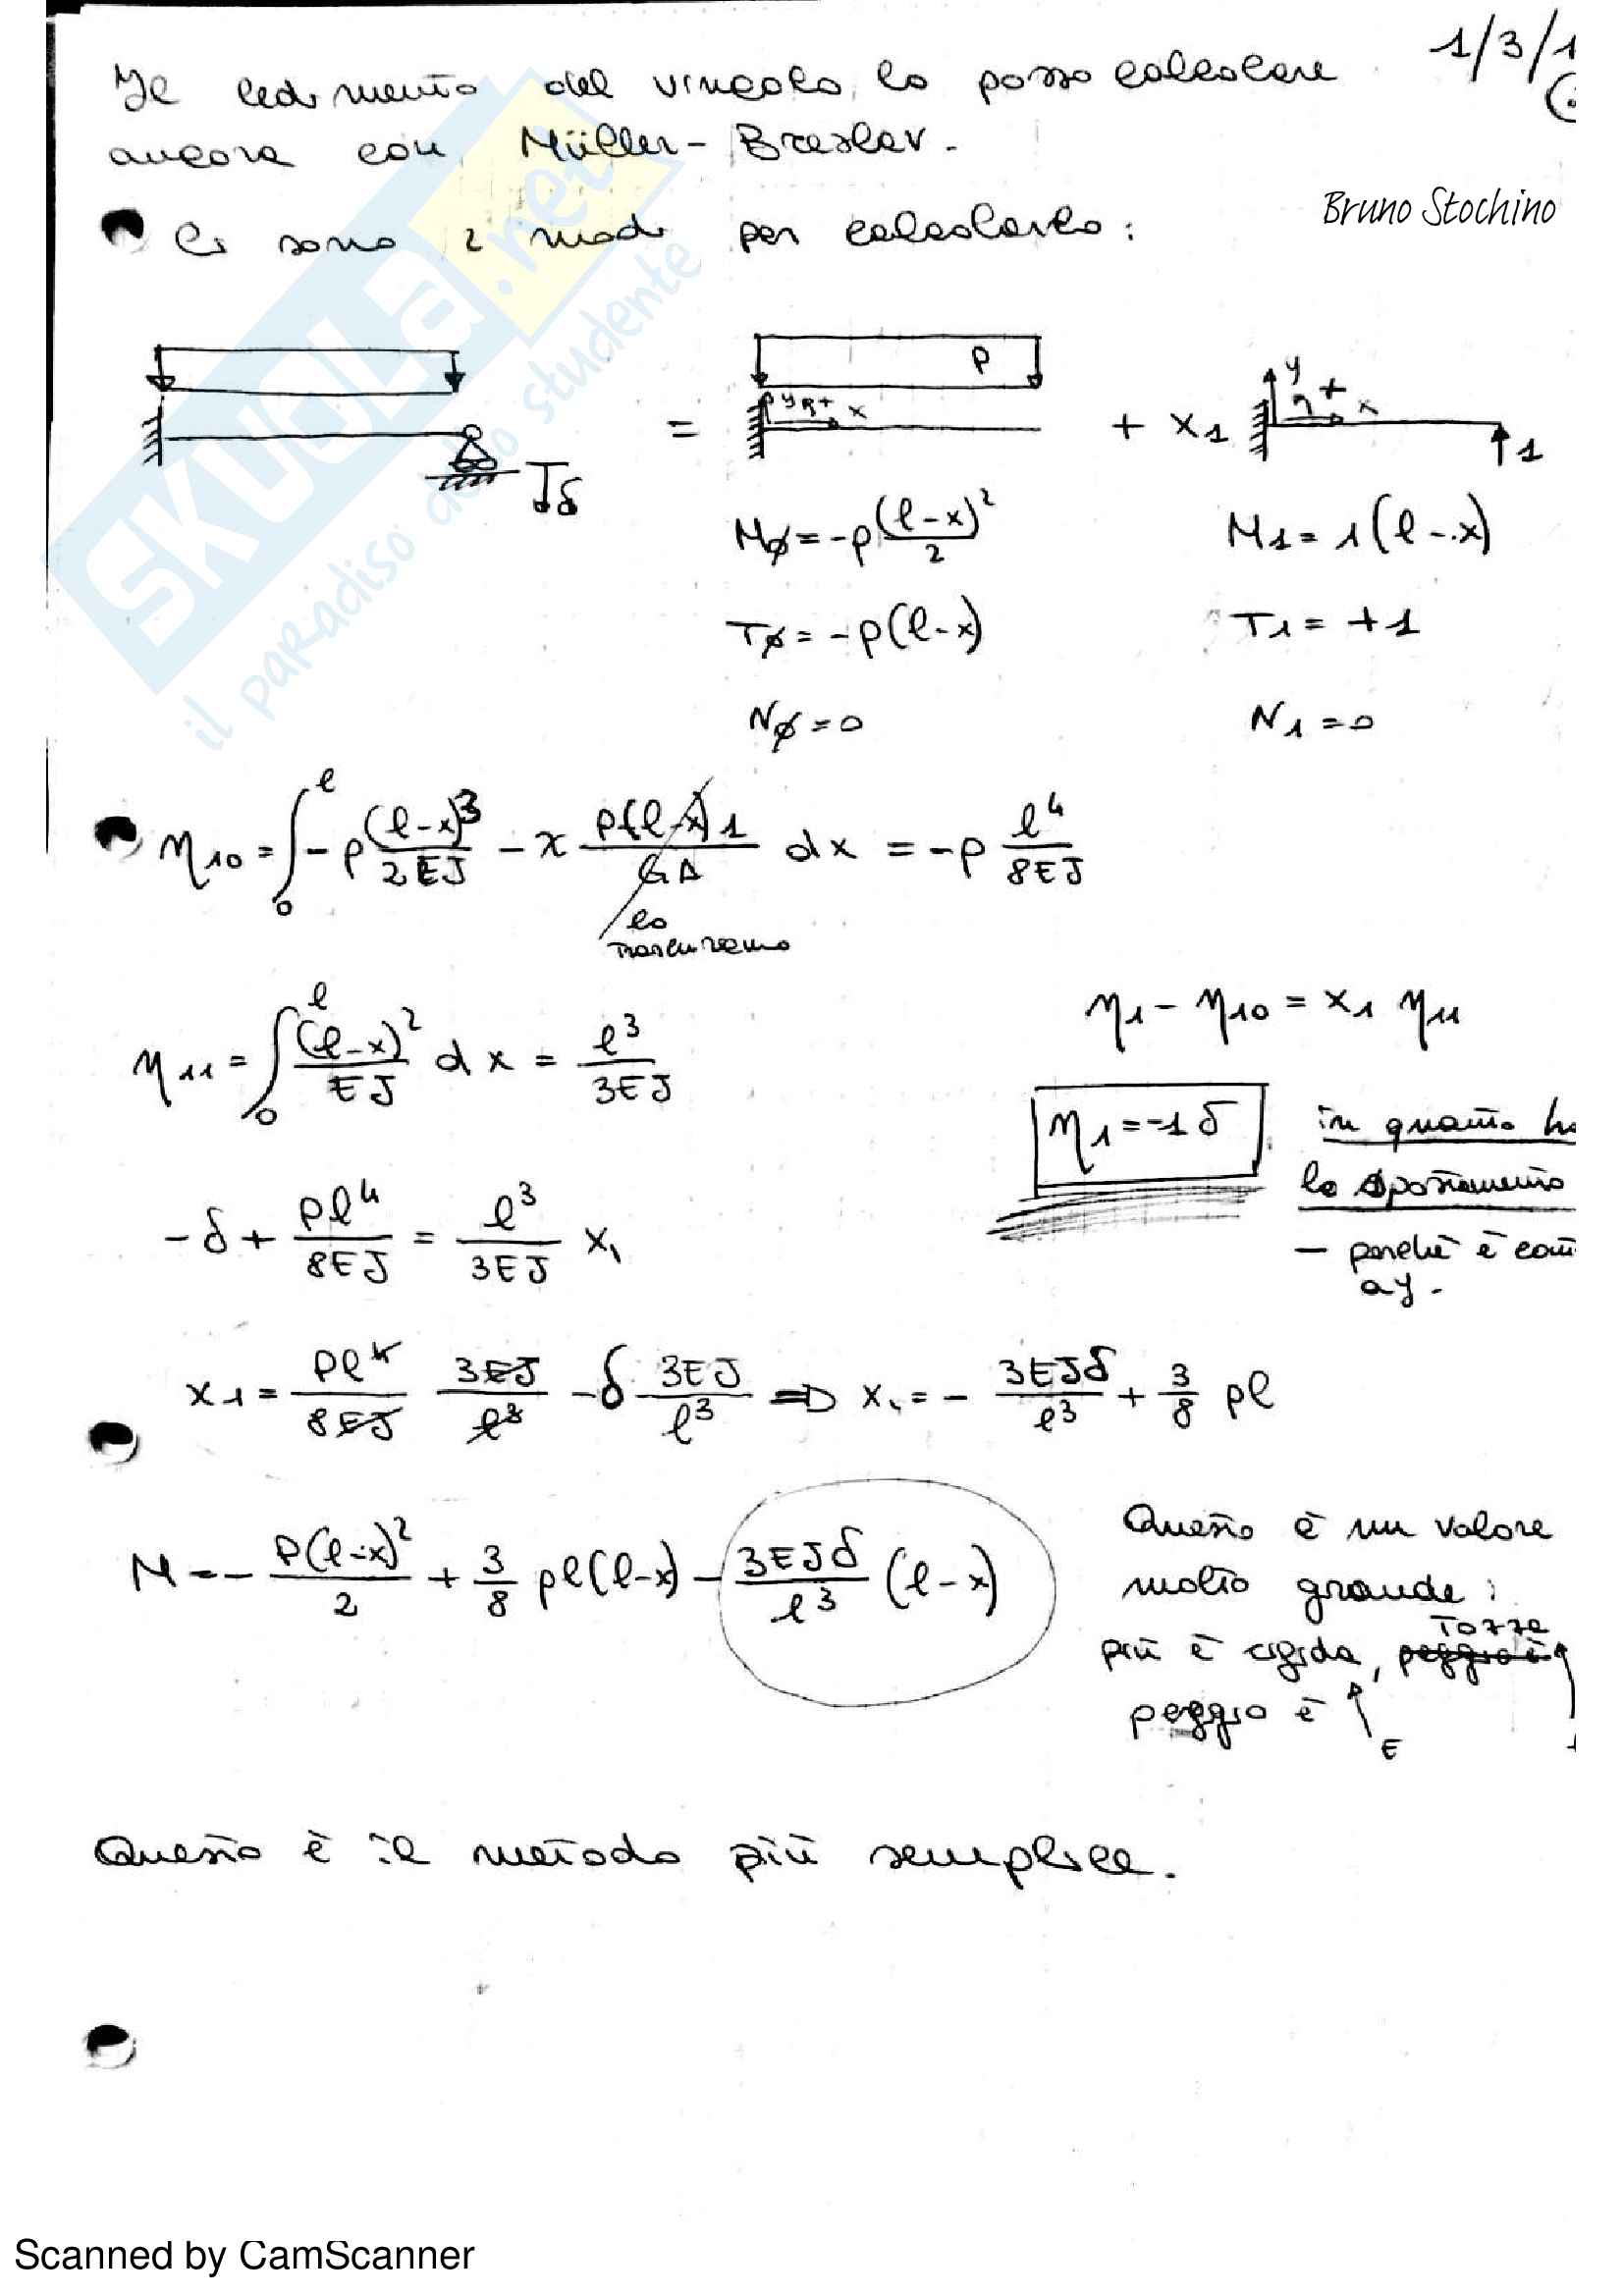 1/3/1
Il cedimento del vincolo lo posso calcolare
ancora con Müller-Breslav.
Bruno Stochino
Ci sono 2 modi per calcolarlo:
SKUOLA.net
il paradiso dello studente
δ
=
p
y x
+ x1
y + x
1
Mø = -p (l-x)²/2
M1 = 1(l-x)
Tø = -p(l-x)
T1 = +1
Nø = 0
N1 = 0
η10 = ∫₀ˡ -p (l-x)³/2EJ - χ p(l-x)1/GA dx = -p l⁴/8EJ
lo
trascuriamo
η11 = ∫₀ˡ (l-x)²/EJ dx = l³/3EJ
η1 - η10 = x1 η11
η1 = -1δ
in quanto
lo spostamento
- perchè è
a y.
-δ + pl⁴/8EJ = l³/3EJ x1
x1 = pl⁴/8EJ 3EJ/l³ - δ 3EJ/l³ => x1 = - 3EJδ/l³ + 3/8 pl
M = - p(l-x)²/2 + 3/8 pl(l-x) - 3EJδ/l³ (l-x)
Questo è un valore
molto grande:
più è rigida, tozza
peggio è
E
Questo è il metodo più semplice.
Scanned by CamScanner